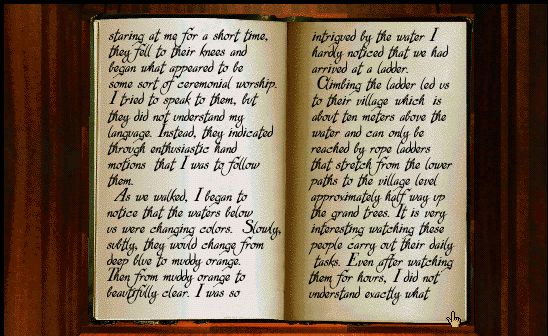 staring at me for a short time,
they fell to their knees and
began what appeared to be
some sort of ceremonial worship.
I tried to speak to them, but
they did not understand my
language. Instead, they indicated
through enthusiastic hand
motions that I was to follow
them.
As we walked, I began to
notice that the waters below
us were changing colors. Slowly,
subtly, they would change from
deep blue to muddy orange.
Then from muddy orange to
beautifully clear. I was so
intrigued by the water I
hardly noticed that we had
arrived at a ladder.
Climbing the ladder led us
to their village which is
about ten meters above the
water and can only be
reached by rope ladders
that stretch from the lower
paths to the village level
approximately half way up
the grand trees. It is very
interesting watching these
people carry out their daily
tasks. Even after watching
them for hours, I did not
understand exactly what